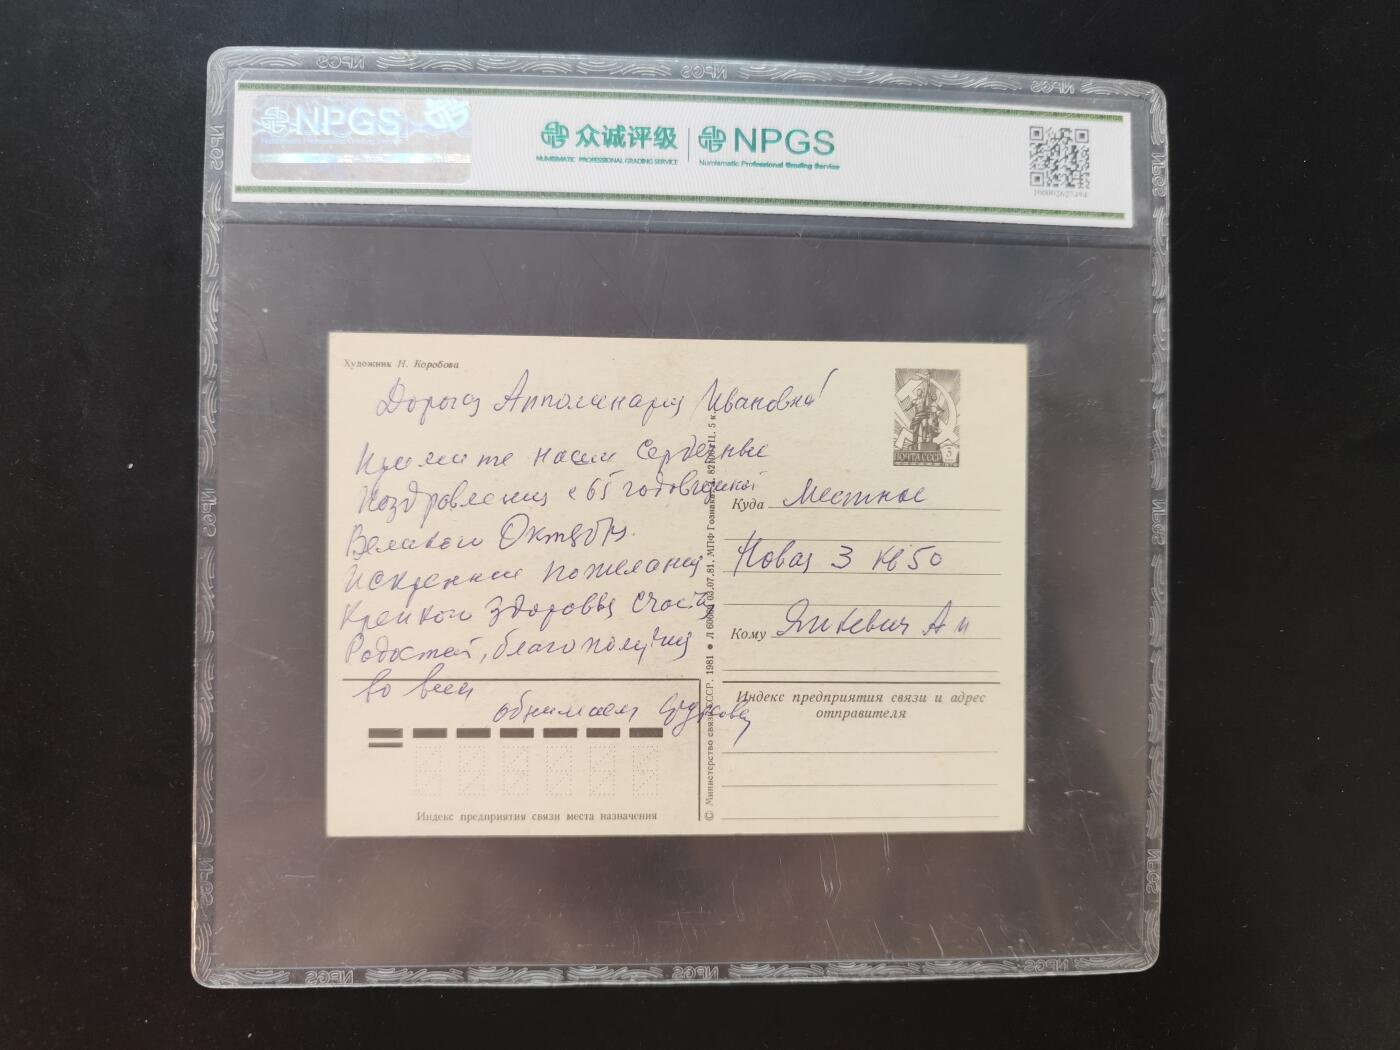 NPGS
众诚评级
NUMISMATIC PROFESSIONAL GRADING SERVICE
NPGS
Numismatic Professional Grading Service
Художник Н. Коробова
Дорогая Апполинария Ивановна!
Примите наши сердечные
Поздравления с 65 годовщиной
Великого Октября.
Искренние пожелания
Крепкого здоровья счастья
Радостей, благополучия
во всем
обнимаем
Индекс предприятия связи места назначения
© Министерство связи СССР. 1981 ● 03.07.81. МПФ Гознака. Ц. 5 к.
ПОЧТА СССР
Куда Местное
Новая 3 кв 50
Кому Янкевич А И
Индекс предприятия связи и адрес
отправителя